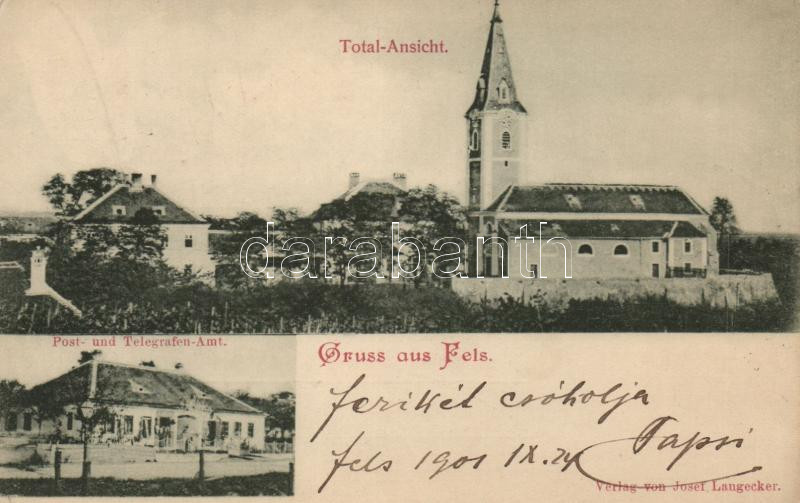 Total-Ansicht.
darabanth.com
Post- und Telegrafen-Amt.
Gruss aus Fels.
ferikét csóholja
fels 1901 IX. 24
Papsi
Verlag von Josef Langecker.